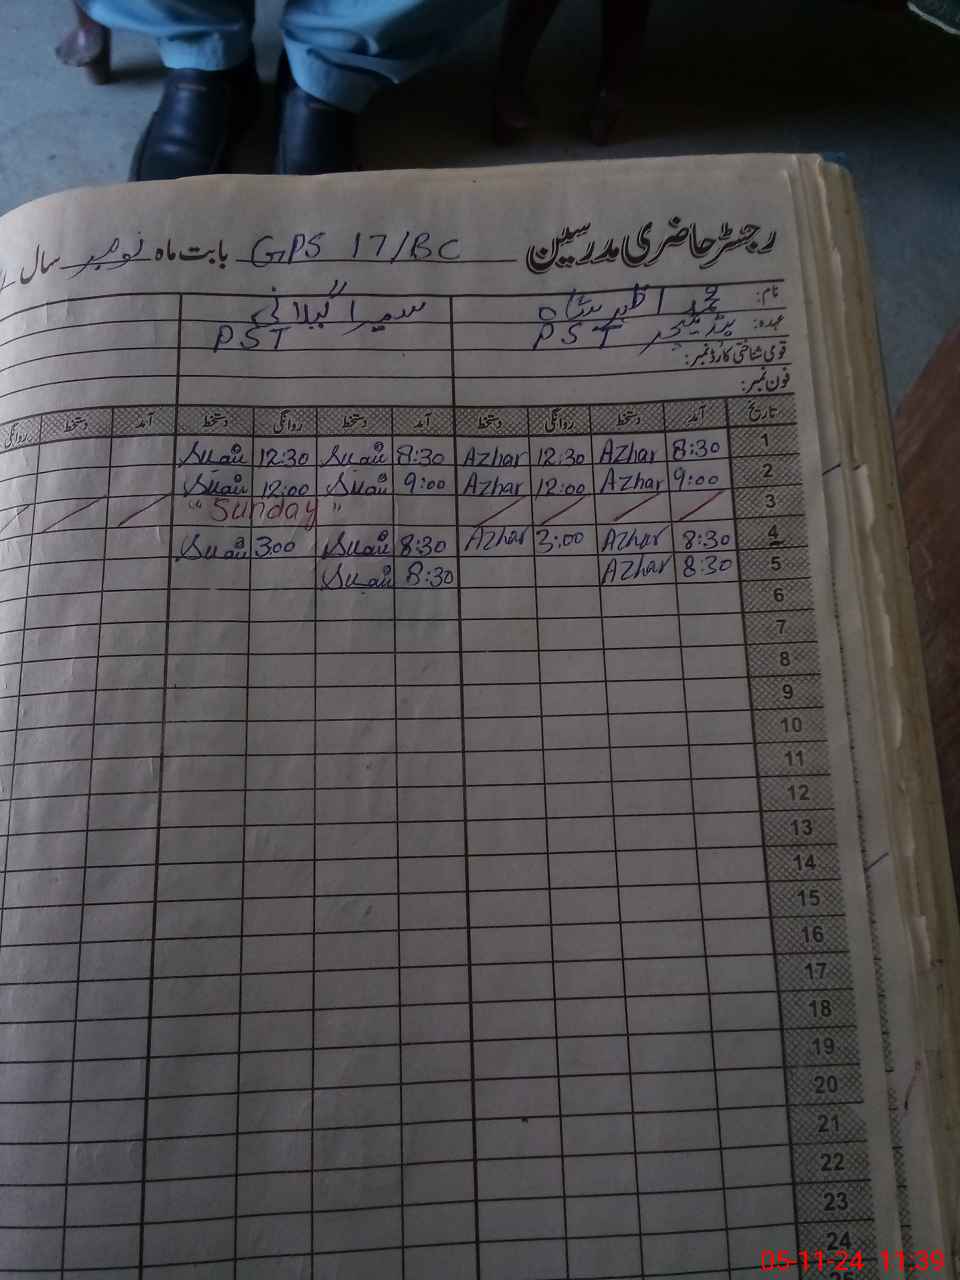 رجسٹر حاضری مدرسین GPS 17/BC بابت ماہ نومبر سال
نام: محمد اظہر سمیرا گیلانی
عہدہ: ہیڈ ٹیچر PST PST
قومی شناختی کارڈ نمبر:
فون نمبر:
تاریخ آمد دستخط روانگی دستخط آمد دستخط روانگی دستخط آمد دستخط روانگی
1 8:30 Azhar 12:30 Azhar 8:30 12:30
2 9:00 Azhar 12:00 Azhar 9:00 12:00
3 " Sunday "
4 8:30 Azhar 3:00 Azhar 8:30 300
5 8:30 Azhar 8:30
6
7
8
9
10
11
12
13
14
15
16
17
18
19
20
21
22
23
24
05-11-24 11:39